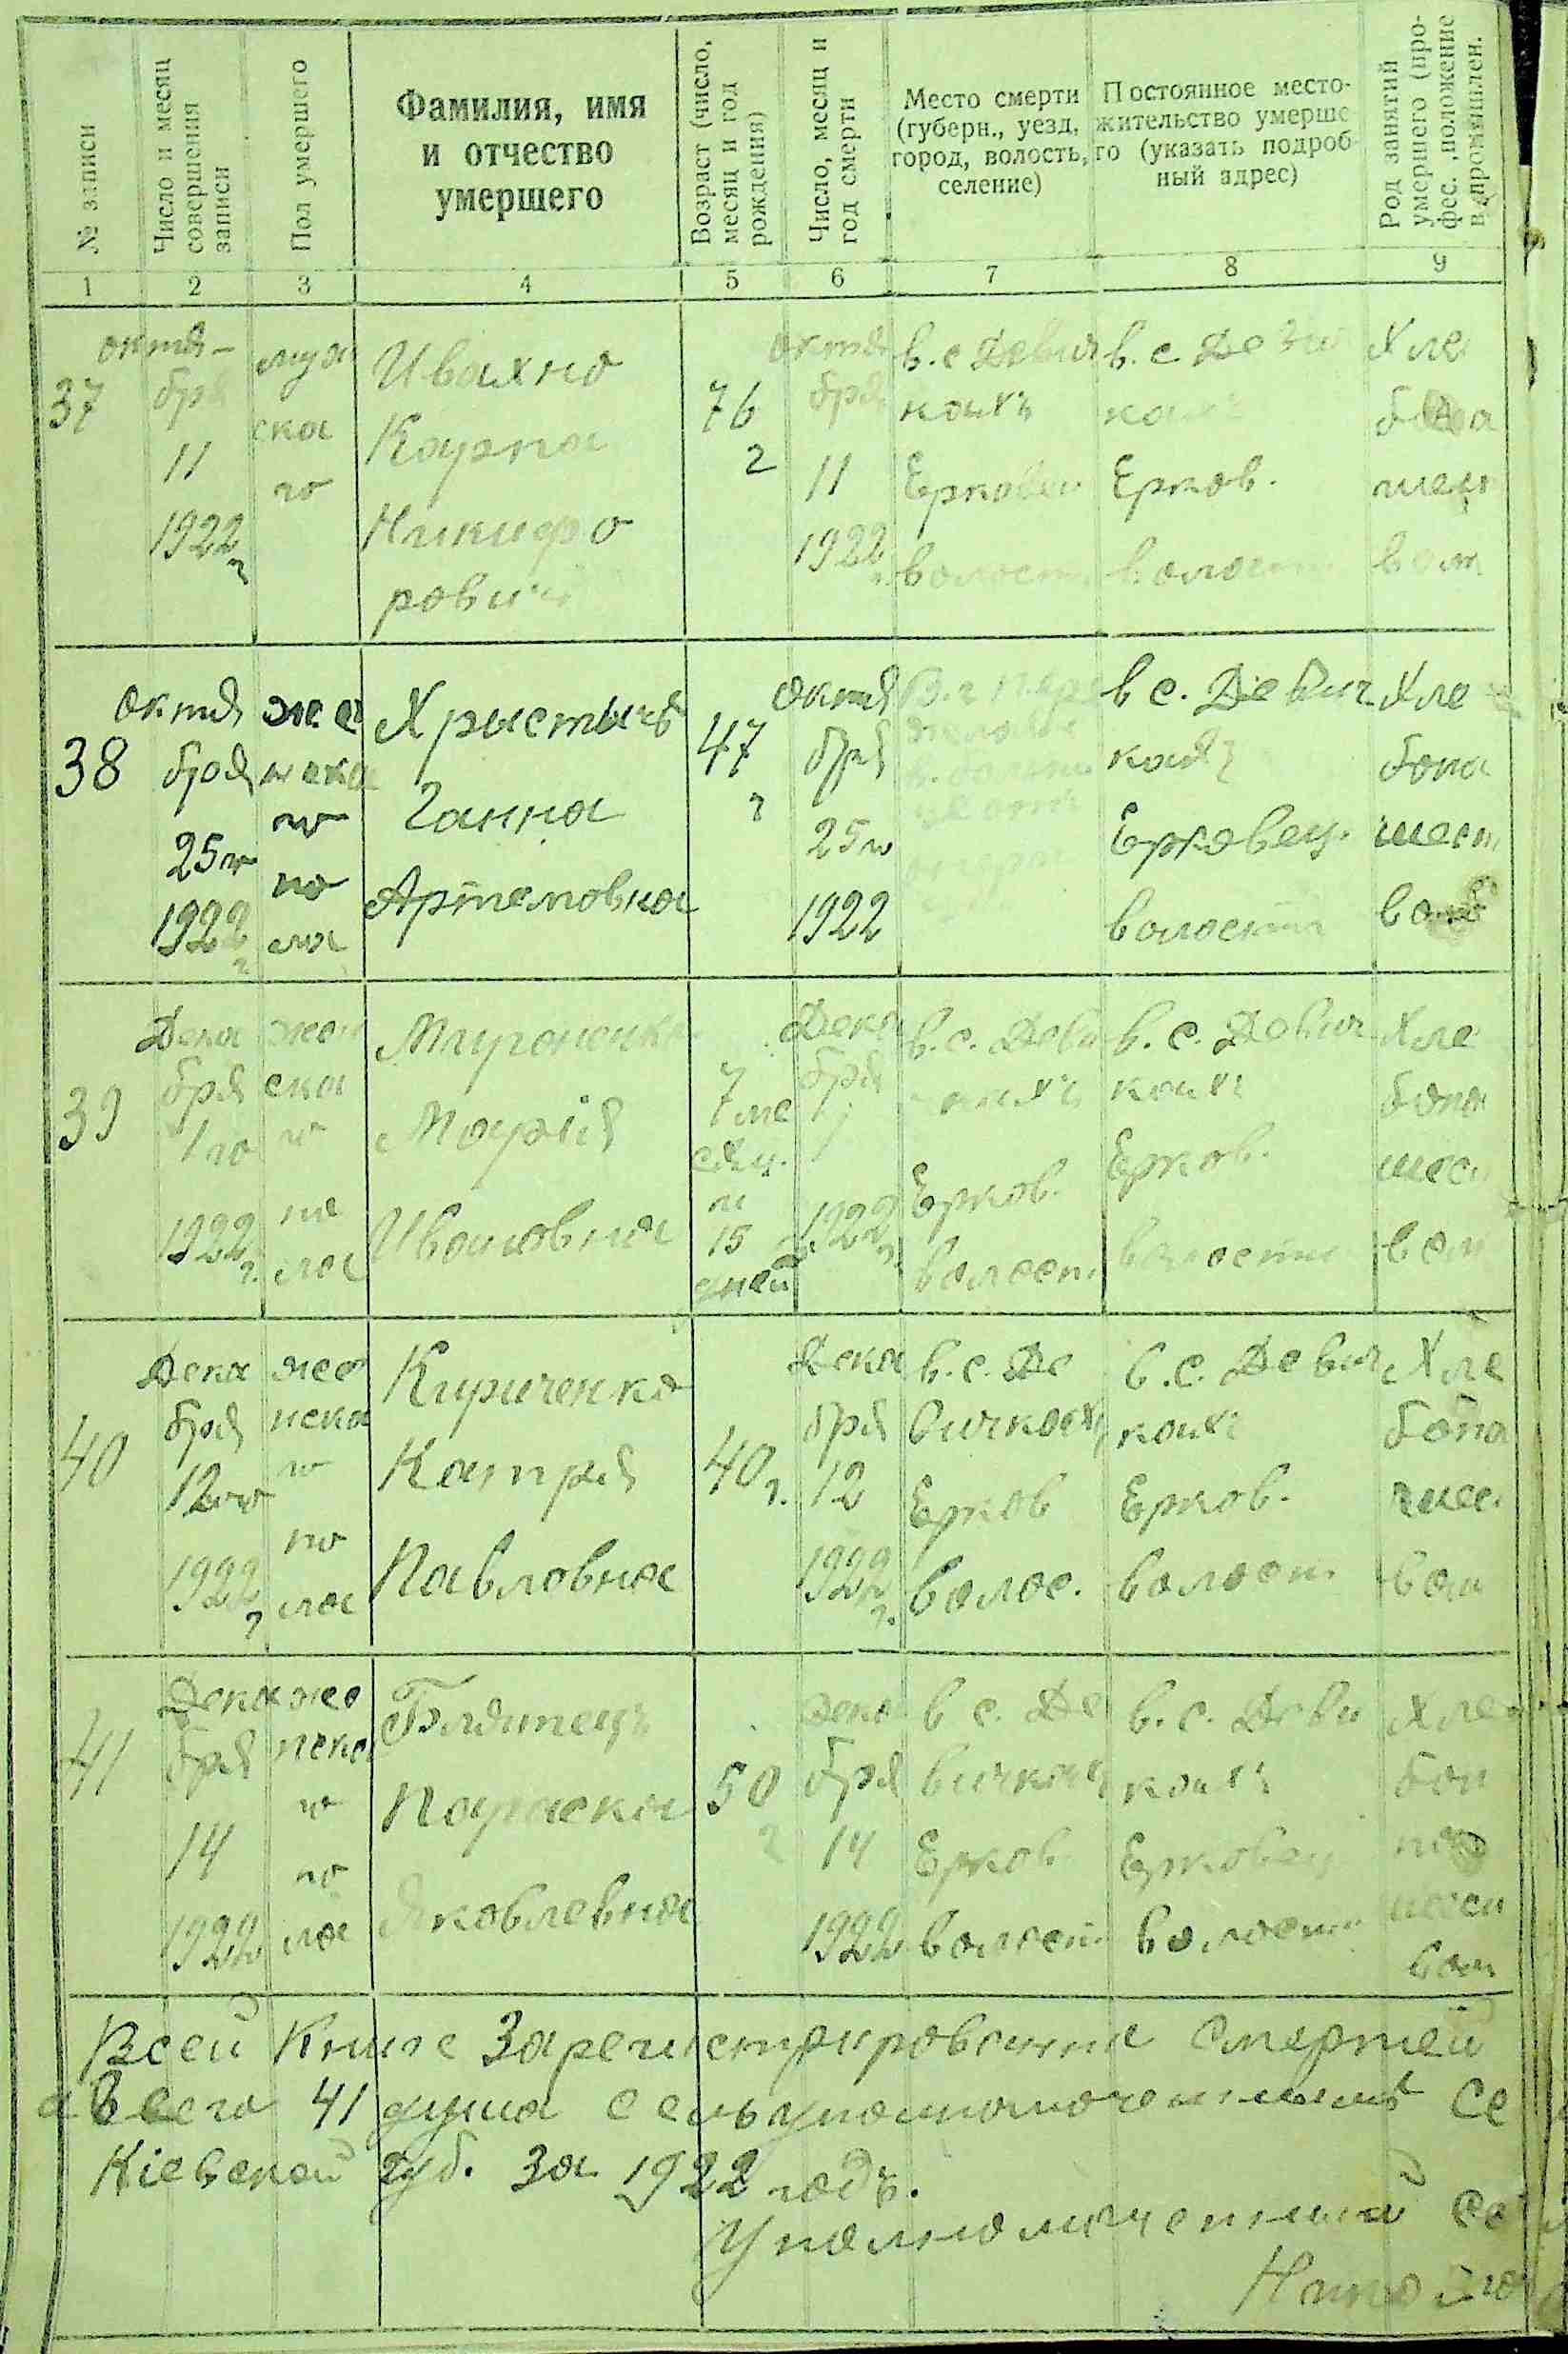 № записи
Число и месяц
совершения
записи
Пол умершего
Фамилия, имя
и отчество
умершего
Возраст (число,
месяц и год
рождения)
Число, месяц и
год смерти
Место смерти
(губерн., уезд,
город, волость,
селение)
Постоянное место-
жительство умерше
го (указать подроб-
ный адрес)
Род занятий
умершего (про-
фес. ,положение
в промышлен.
1 2 3 4 5 6 7 8 9
37
октя-
бря
11
1922
г
муж
ска
го
Ивахно
Карпа
Никифо
рович
76
г
октя
бря
11
1922
в. с Девич
кахъ
Ерковец
волост
в. с Деви
кахъ
Ерков.
волости
Хле
бопа
шест
вом
38
октя
бря
25го
1922
г
жен
ска
го
по
ла
Хрыстычъ
Ганна
Артемовна
47
г
октя
бря
25го
1922
в с. Девич
кахъ
Ерковец.
волости
Хле
бопа
шест
вом
39
Дека
бря
1го
1922
г.
жен
ска
го
по
ла
Мироненко
Марія
Ивановна
7 ме
сяц.
и
15
дней
Дека
бря
1
1922
г.
в. с. Деви
кахъ
Ерков.
волост
в. с. Девич
кахъ
Ерков.
волости
Хле
бопа
шест
вом
40
Дека
бря
12го
1922
г
жен
ска
го
по
ла
Кириченко
Катря
Павловна
40 г.
Дека
бря
12
1922
г.
в. с. Де
вичкахъ
Ерков
волос.
в. с. Девич
кахъ
Ерков.
волост
Хле
бопа
шес
вом
41
Дека
бря
14
1922
же
нска
го
по
ла
Параска
Яковлевна
50
г
Дека
бря
14
1922
в с. Де
вичкахъ
Ерков
волост
в. с. Деви
кахъ
Ерковец
волост
Хле
боп
па
шест
вом
Всей Книге Зарегистрированне Смертей
а Всего 41 душа Сельуполномоченнымъ Се
Кіевской губ. За 1922 годъ.
Уполномоченный Се